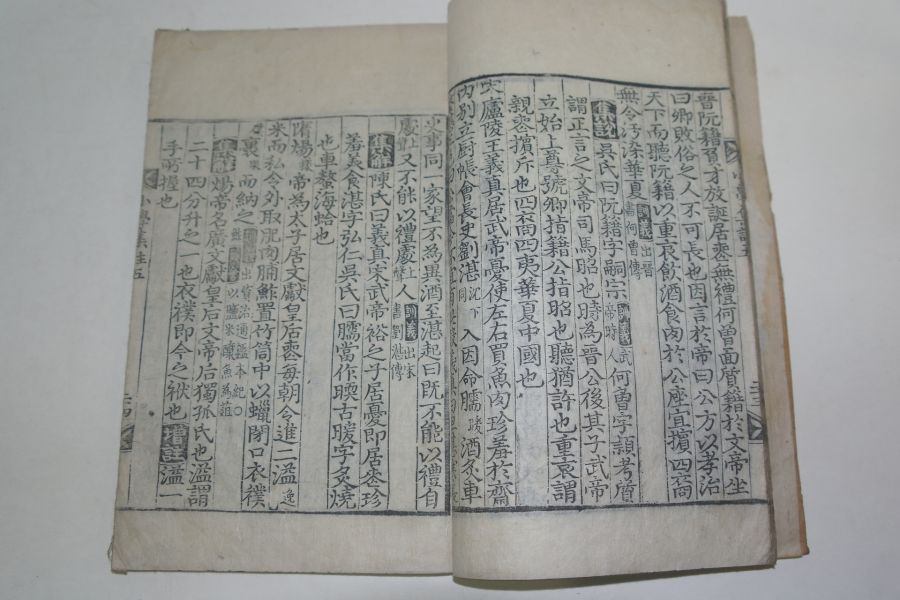 晉阮籍負才放誕居喪無禮何曾面質籍於文帝坐
曰卿敗俗之人不可長也因言於帝曰公方以孝治
天下而聽阮籍以重哀飮酒食肉於公座宜擯四裔
無令汚染華夏 訓義 出晉書何曾傳
集註 吳氏曰阮籍字嗣宗 訓義 武帝時人 何曾字穎考質
謂正言之文帝司馬昭也時爲晉公後其子武帝
立始上尊號卿指籍公指昭也聽猶許也重哀謂
親喪擯斥也四裔四夷華夏中國也
宋廬陵王義眞居武帝憂使左右買魚肉珍羞於齋
內別立厨帳會長史劉湛 入因命臑酒炙車
螯 湛
火事同一家望不為異酒至湛起曰旣不能以禮自
處 上 又不能以禮處 上 人 訓義 出宋書劉湛傳
集解 陳氏曰義眞宋武帝裕之子居憂即居喪珍
羞美食湛字弘仁吳氏曰臑當作㬉古暖字炙燒
也車螯海蛤也
隋煬帝為太子居文獻皇后喪每朝令進二溢 逸
米而私令外取肥肉脯鮓置竹筒中以蠟閉口衣襆
裹 而納之 出資治通鑑本紀 鮓 以鹽米釀魚爲菹
集解 煬帝名廣文獻皇后文帝后獨孤氏也溢謂
二十四分升之一也衣襆即今之袱也 增註 溢一
手所握也
小學集註五
二十四